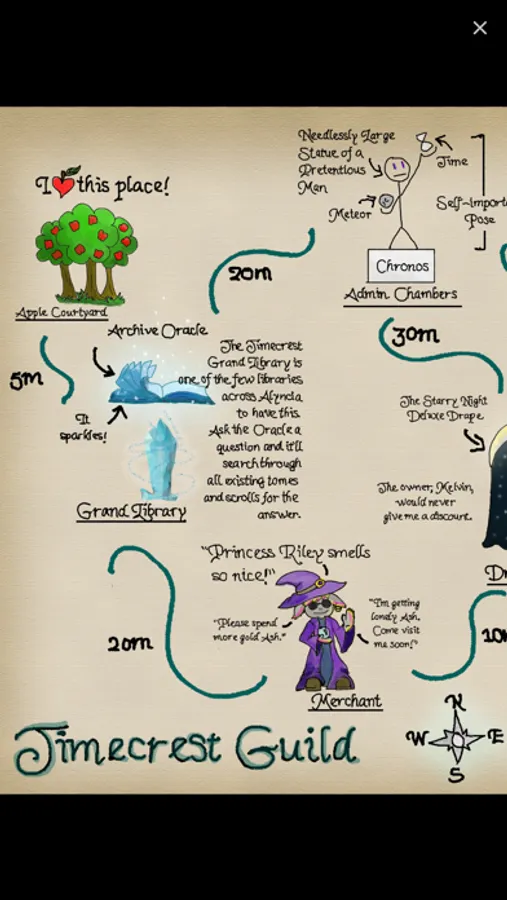 Needlessly Large
Statue of a
Pretentious
Man
Time
Meteor
Self-import
Pose
Chronos
Admin Chambers
I this place!
Apple Courtyard
20m
30m
5m
Archive Oracle
It
sparkles!
The Timecrest
Grand Library is
one of the few libraries
across Alyncia
to have this.
Ask the Oracle a
question and it'll
search through
all existing tomes
and scrolls for the
answer.
Grand Library
The Starry Night
Deluxe Drape
The owner, Melvin,
would never
give me a discount.
Dr
"Princess Riley smells
so nice!"
"Please spend
more gold Ash."
"I'm getting
lonely Ash.
Come visit
me soon!"
Merchant
20m
10
Timecrest Guild
N
W E
S